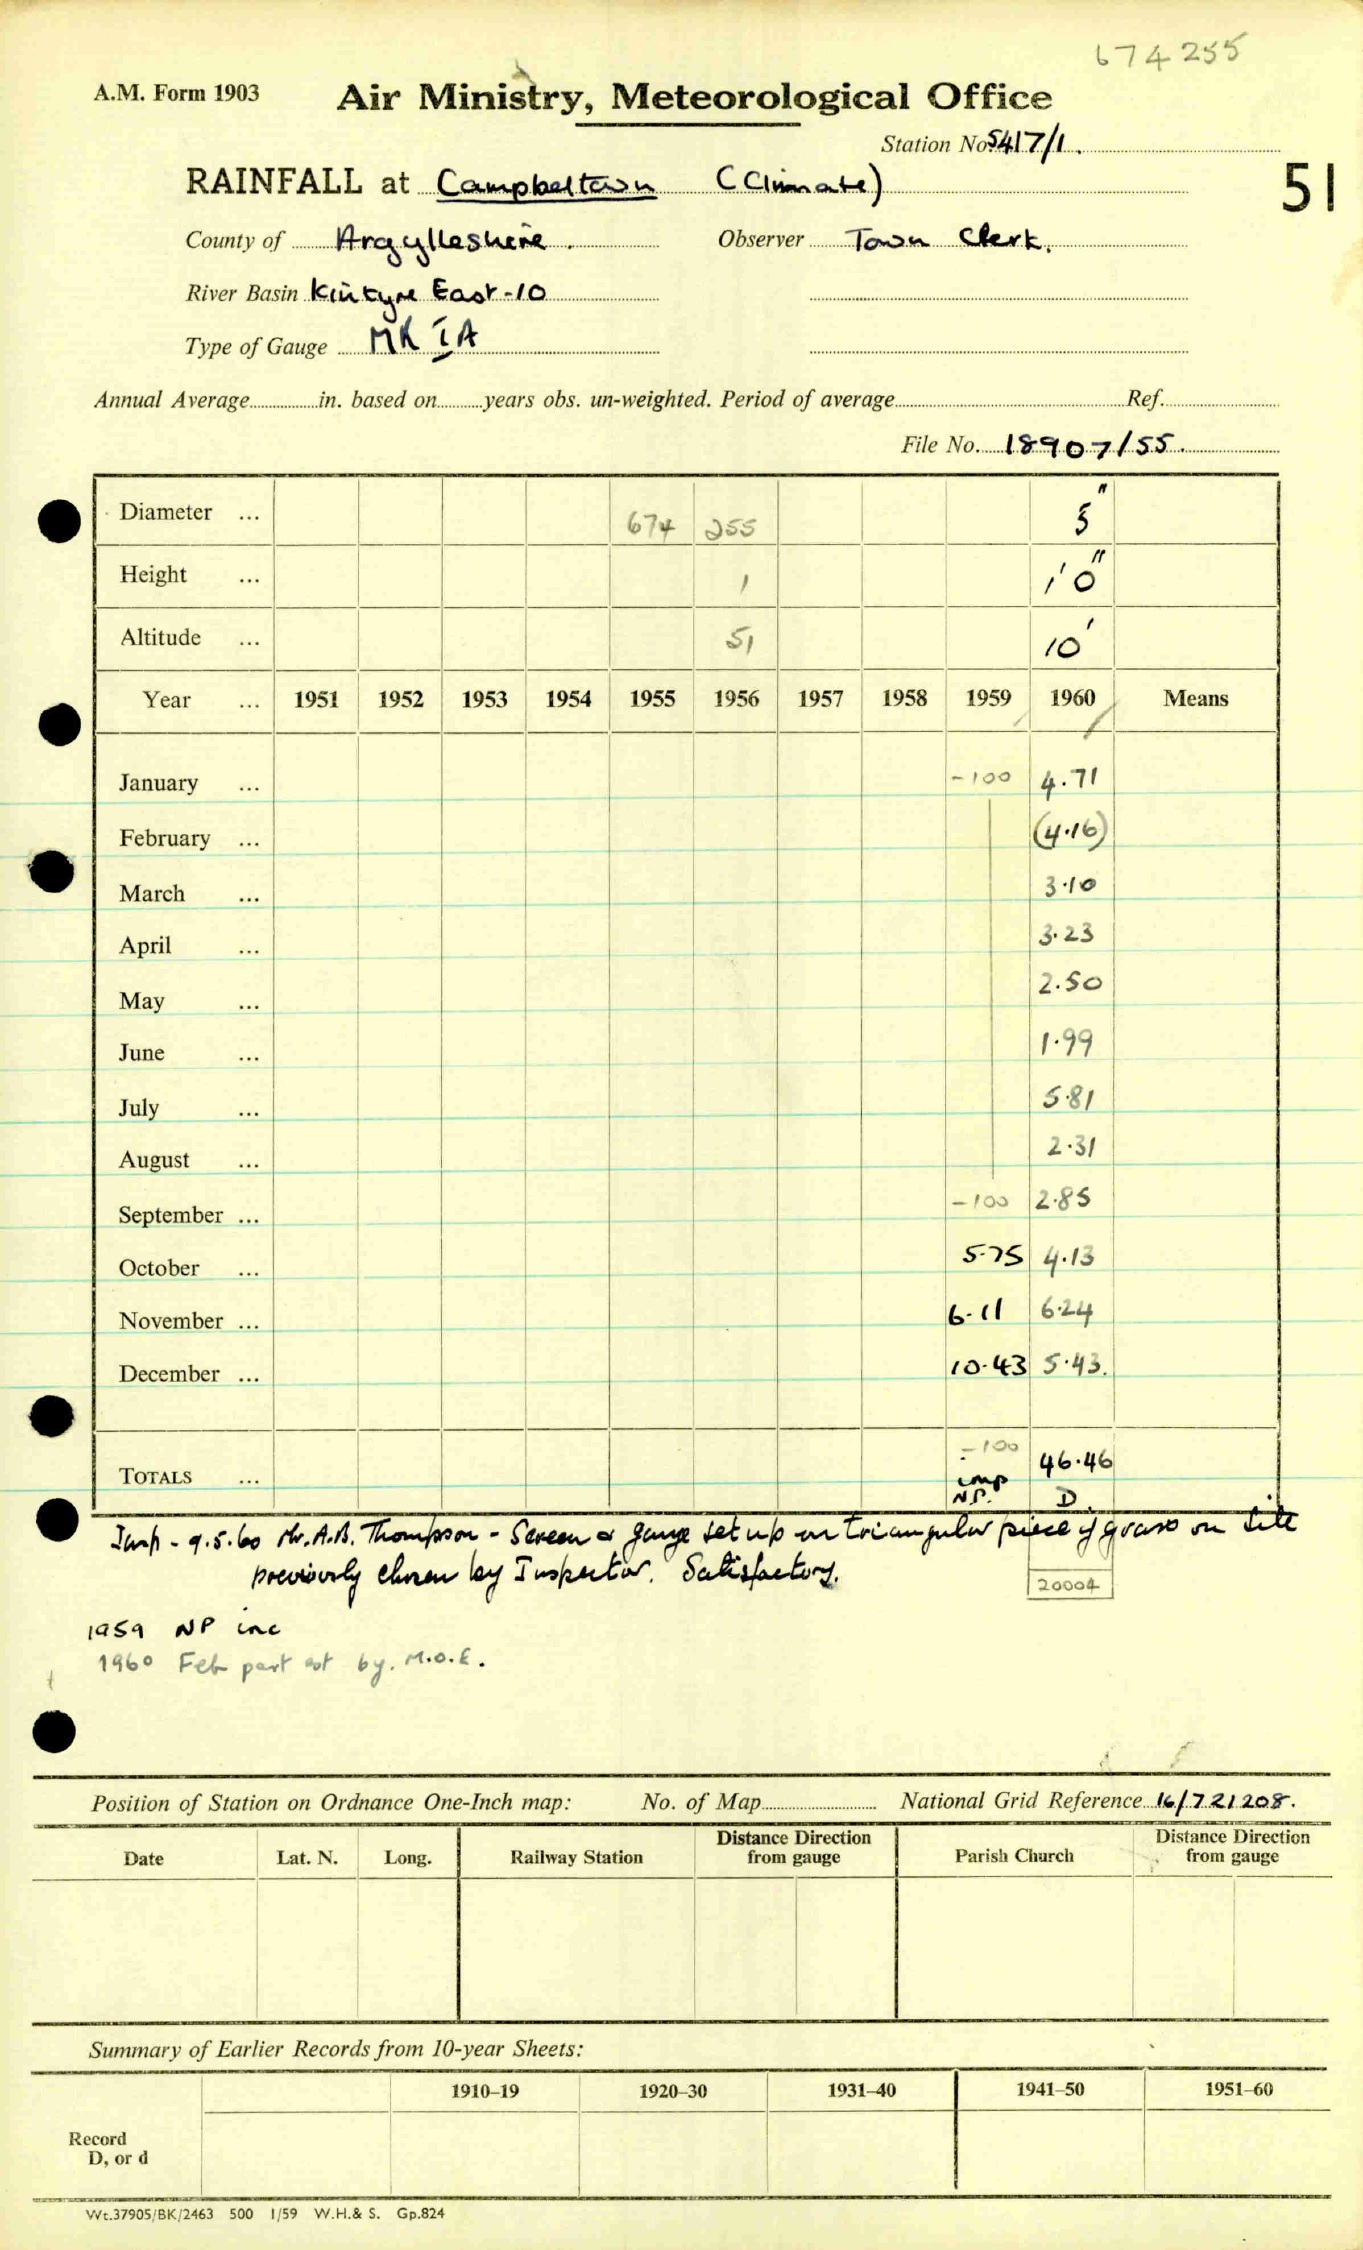 674255
A.M. Form 1903
Air Ministry, Meteorological Office
Station No. 5417/1.
RAINFALL at Campbeltown (Climate)
51
County of Argylleshire. Observer Town Clerk.
River Basin Kintyre East-10
Type of Gauge MK IA
Annual Average in. based on years obs. un-weighted. Period of average Ref.
File No. 18907/55.
Diameter ... 674 255 5"
Height ... 1 1'0"
Altitude ... 51 10'
Year ... 1951 1952 1953 1954 1955 1956 1957 1958 1959 1960 Means
January ... -100 4.71
February ... (4.16)
March ... 3.10
April ... 3.23
May ... 2.50
June ... 1.99
July ... 5.81
August ... 2.31
September ... -100 2.85
October ... 5.75 4.13
November ... 6.11 6.24
December ... 10.43 5.43.
-100
TOTALS ... imp 46.46
N.P. D.
Insp - 9.5.60 Mr. A.B. Thompson - Screen & gauge set up on triangular piece of grass on site
previously chosen by Inspector. Satisfactory.
20004
1959 NP inc
1960 Feb part est by. M.O.E.
Position of Station on Ordnance One-Inch map: No. of Map National Grid Reference 16/721208.
Date Lat. N. Long. Railway Station Distance Direction from gauge Parish Church Distance Direction from gauge
Summary of Earlier Records from 10-year Sheets:
1910–19 1920–30 1931–40 1941–50 1951–60
Record
D, or d
Wt.37905/BK/2463 500 1/59 W.H.& S. Gp.824